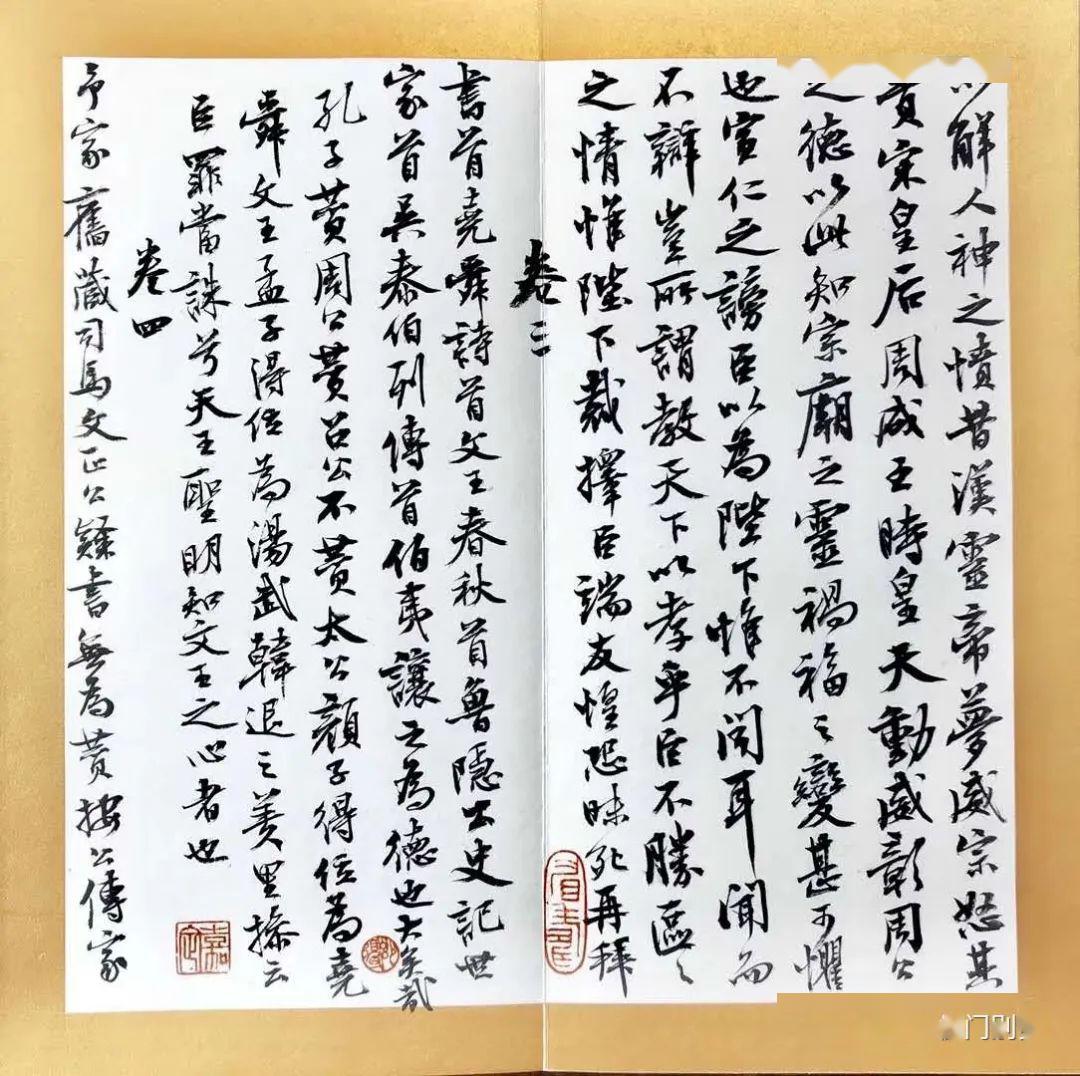 以解人神之憤昔漢靈帝夢威宗怒其
責宋皇后周成王時皇天動威彰周公
之德以此知宗廟之靈禍福之變甚可懼
也宣仁之謗臣以為陛下惟不聞耳聞而
不辯豈所謂教天下以孝乎臣不勝區々
之情惟陛下裁擇臣端友惶恐昧死再拜
卷三
書首堯舜詩首文王春秋首魯隱公史記世
家首吳泰伯列傳首伯夷讓之為德也大矣哉
孔子贊周公贊召公不贊太公顏子得位為堯
舜文王孟子得位為湯武韓退之羑里操云
臣罪當誅兮天王聖明知文王之心者也
卷四
予家舊藏司馬文正公隸書無為贊按公傳家
嘉定